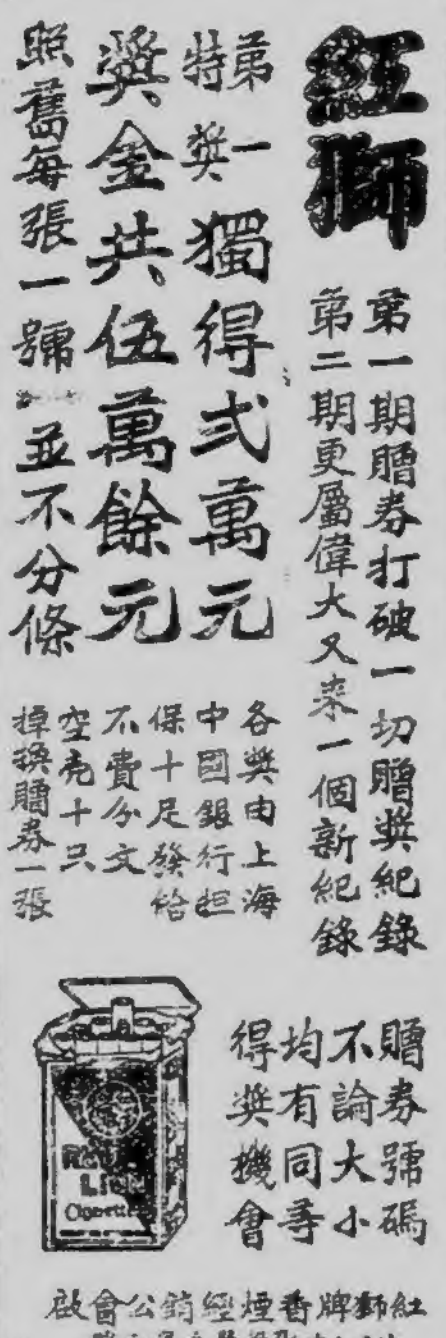 紅獅
第一期贈券打破一切贈奬紀錄
第二期更屬偉大又來一個新紀錄
第一
特奬
獨得弍萬元
奬金共伍萬餘元
照舊每張一號
並不分條
各奬由上海
中國銀行担
保十足發給
不費分文
空壳十只
掉換贈券一張
贈券號碼
不論大小
均有同等
得奬機會
Lion
Cigarettes
紅獅牌香煙經銷公會啟